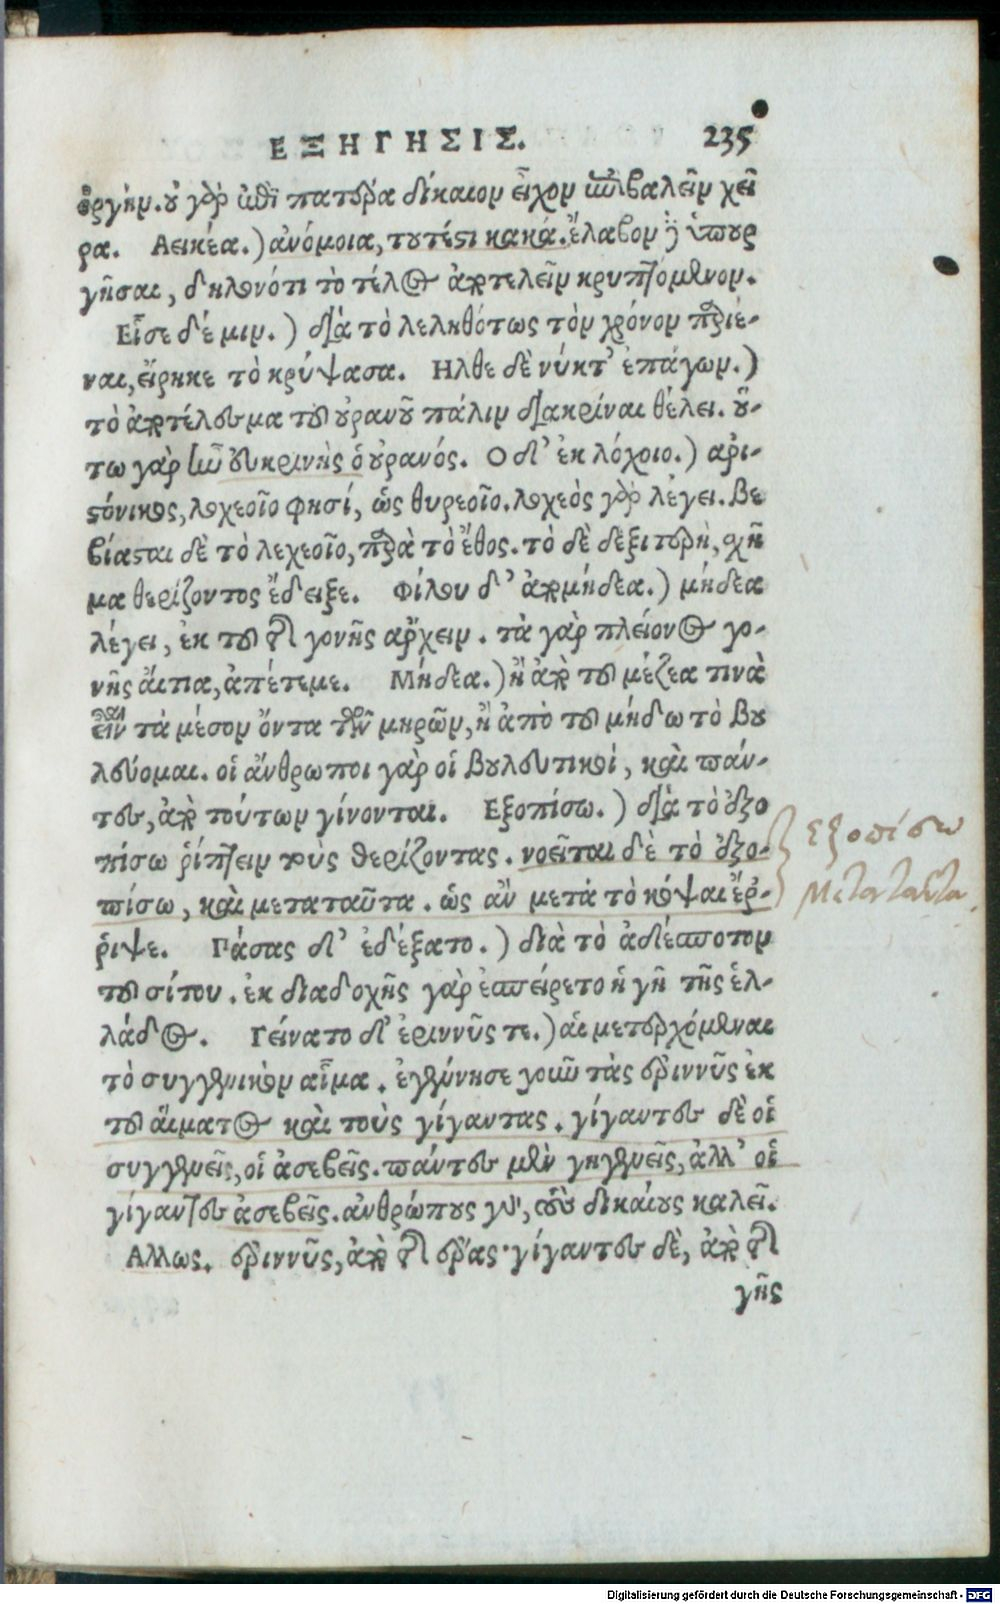 ΕΞΗΓΗΣΙΣ. 235
ὀργήν. οὐ γὰρ ἐπὶ πατέρα δίκαιον εἶχον ἐπιβαλεῖν χεῖ
ρα. Αεικέα.) ἀνόμοια, τουτέστι κακά. ἔλαβον ὑπουρ
γῆσαι, δηλονότι τὸ τέλος ἀποτελεῖν κρυπτόμενον.
Εἷσε δέ μιν.) διὰ τὸ λεληθότως τὸν χρόνον παριέ-
ναι, εἴρηκε τὸ κρύψασα. Ηλθε δὲ νύκτ' ἐπάγων.)
τὸ ἀποτέλεσμα τοῦ οὐρανοῦ πάλιν διακρίναι θέλει. οὕ-
τω γὰρ ἦν εὐκρινὴς ὁ οὐρανός. Ο δ' ἐκ λόχοιο.) ἀρι-
στόνικος, λοχεοῖο φησί, ὡς θυρεοῖο. λοχεὸς γὰρ λέγει. βε
βίασται δὲ τὸ λεχεοῖο, παρὰ τὸ ἔθος. τὸ δὲ δεξιτερὴ, σχῆ
μα θερίζοντος ἔδειξε. Φίλου δ' ἀπὸ μήδεα.) μήδεα
λέγει, ἐκ τοῦ τῆς γονῆς ἄρχειν. τὰ γὰρ πλείονος γο-
νῆς αἴτια, ἀπέτεμε. Μήδεα.) ἢ ἀπὸ τοῦ μέζεα τινὰ
εἶναι τὰ μέσον ὄντα τῶν μηρῶν, ἢ ἀπὸ τοῦ μήδω τὸ βου
λεύομαι. οἱ ἄνθρωποι γὰρ οἱ βουλευτικοί, καὶ πάν-
τες, ἀπὸ τούτων γίνονται. Εξοπίσω.) διὰ τὸ ἐξο
πίσω ῥίπτειν τοὺς θερίζοντας. νοεῖται δὲ τὸ ἐξο-
πίσω, καὶ μεταταῦτα. ὡς ἂν μετὰ τὸ κόψαι ἔρ-
ριψε. Γάσας δ' ἐδέξατο.) διὰ τὸ ἀδιέσποτον
τοῦ σίτου. ἐκ διαδοχῆς γὰρ ἐσπείρετο ἡ γῆ τῆς ἑλ-
λάδος. Γείνατο δ' ἐριννῦς τε.) αἱ μετερχόμεναι
τὸ συγγενικὸν αἷμα. ἐγέννησε γοῦν τὰς ἐριννῦς ἐκ
τοῦ αἵματος καὶ τοὺς γίγαντας. γίγαντες δὲ οἱ
συγγενεῖς, οἱ ἀσεβεῖς. πάντες μὲν γηγενεῖς, ἀλλ' οἱ
γίγαντες ἀσεβεῖς. ἀνθρώπους γοῦν, τοὺς δικαίους καλεῖ.
Αλλως. ἐριννῦς, ἀπὸ τῆς ἔρας· γίγαντες δὲ, ἀπὸ τῆς
γῆς
εξοπίσω
μεταταῦτα
Digitalisierung gefördert durch die Deutsche Forschungsgemeinschaft - DFG